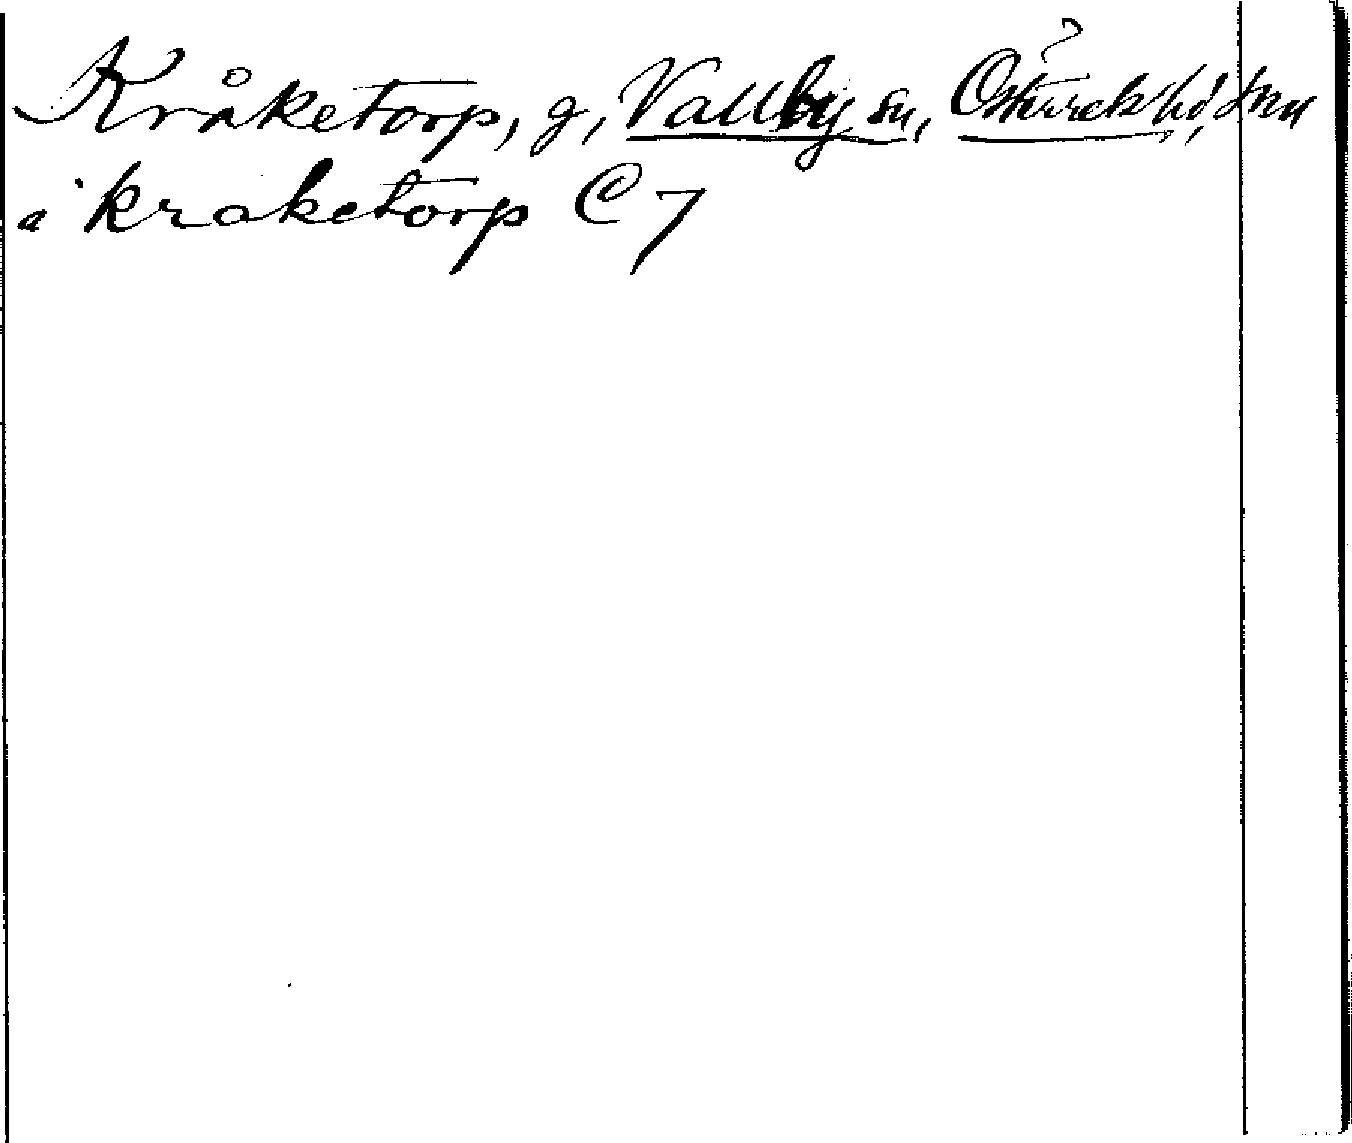 Kråketorp, g, Vallby sn, Österrek hd, Smu
a kraketorp C 7